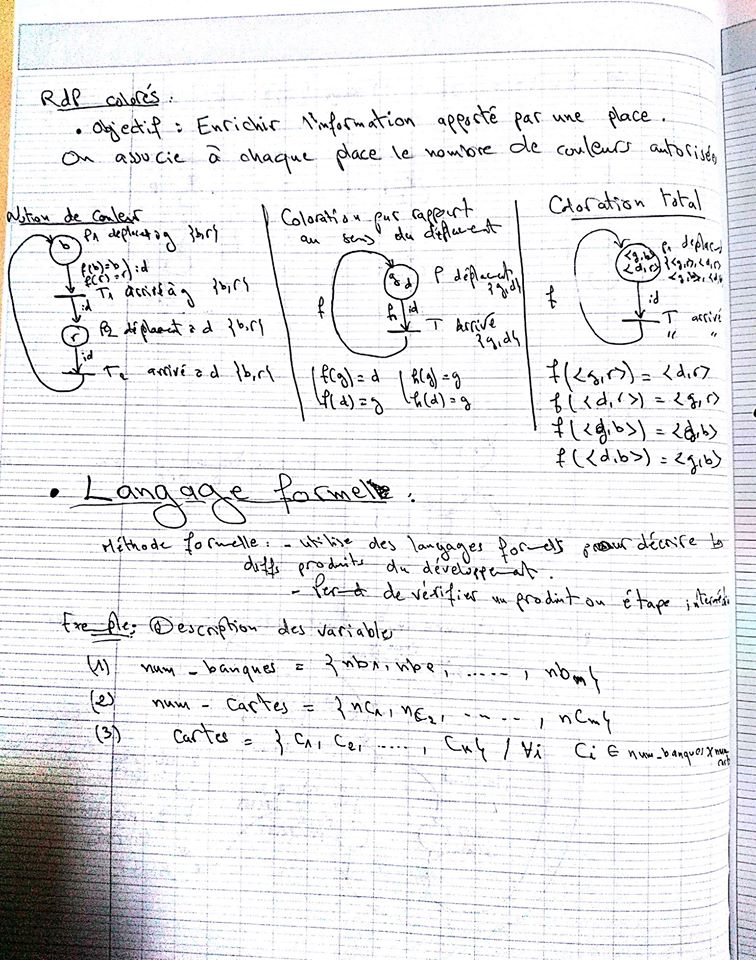 RdP colorés :
• Objectif : Enrichir l'information apporté par une place.
On associe à chaque place le nombre de couleurs autorisées
Notion de couleur
P1 déplacent à g {b,r}
b
f(b)=b
f(r)=r
id
T1 arrivé à g {b,r}
id
r
P2 déplacent à d {b,r}
id
T2 arrivé à d {b,r}
Coloration par rapport
au sens du déplacement
g d
P déplacent
{g,d}
f
h
id
T Arrivé
{g,d}
f(g) = d
f(d) = g
h(g) = g
h(d) = g
Coloration total
<g,b>
<d,r>
P1 déplacent
{<g,r>,<d,r>
<g,b>,<d,b>
f
id
T arrivé
" "
f(<g,r>) = <d,r>
f(<d,r>) = <g,r>
f(<g,b>) = <d,b>
f(<d,b>) = <g,b>
• Langage formel :
Méthode formelle : - utilise des langages formels pour décrire
diffs produits du développement.
- Permet de vérifier un produit ou étape
Exemple : Description des variable
(1) num_banques = {nb1, nb2, ....., nbm}
(2) num-cartes = {nC1, nC2, ....., nCn}
(3) Cartes = {C1, C2, ...., Cn} / ∀i Ci ∈ num_banques x